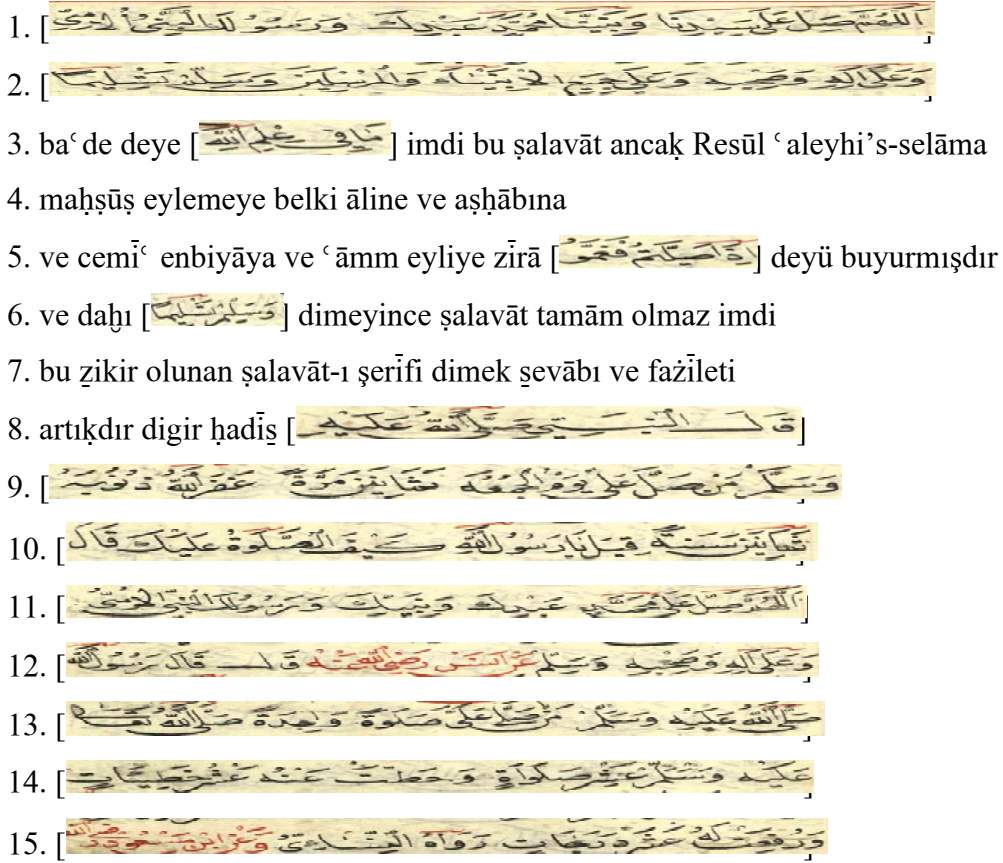 1. [اللهم صل على سيدنا ونبينا محمد عبدك ورسولك النبي الامى]
2. [وعلى اله وصحبه وعلى جميع الانبياء والمرسلين وسلم تسليما]
3. baʿde deye [ما فى علم الله] imdi bu ṣalavāt ancaḳ Resūl ʿaleyhi’s-selāma
4. maḥṣūṣ eylemeye belki āline ve aṣḥābına
5. ve cemīʿ enbiyāya ve ʿāmm eyliye zīrā [اذا صليتم فعموا] deyü buyurmışdır
6. ve daḫı [وسلم تسليما] dimeyince ṣalavāt tamām olmaz imdi
7. bu ẕikir olunan ṣalavāt-ı şerīfi dimek s̱evābı ve fażīleti
8. artıḳdır digir ḥadīs̱ [قال النبى صلى الله عليه]
9. [وسلم من صل على يوم الجمعه ثمانين مرة غفر الله ذنوبه]
10. [ثمانين سنة قيل يا رسول الله كيف الصلوة عليك قال]
11. [اللهم صل على محمد عبدك ونبيك ورسولك النبى الامى]
12. [وعلى اله وصحبه وسلم عن انس رضى الله عنه قال قال رسول الله]
13. [صلى الله عليه وسلم من صل على صلوة واحدة صلى الله تعالى]
14. [عليه وسلم عشر صلواة وحطت عنه عشر خطيئات]
15. [ورفعت له عشر درجات رواه النسائى وعن ابن مسعود رضى الله]